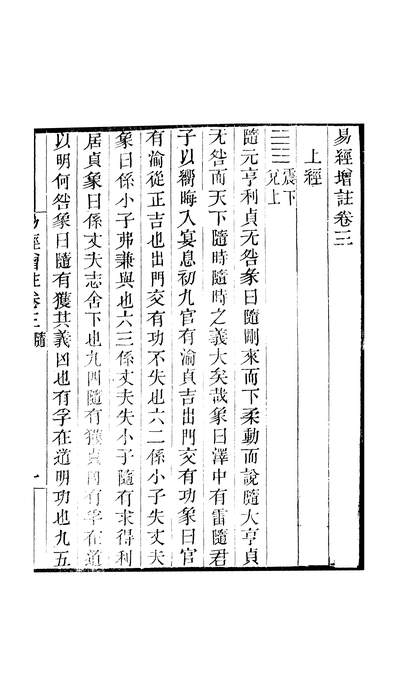 易經增註卷三
上經
震下
兌上
隨元亨利貞无咎彖曰隨剛來而下柔動而說隨大亨貞
无咎而天下隨時隨時之義大矣哉象曰澤中有雷隨君
子以嚮晦入宴息初九官有渝貞吉出門交有功象曰官
有渝從正吉也出門交有功不失也六二係小子失丈夫
象曰係小子弗兼與也六三係丈夫失小子隨有求得利
居貞象曰係丈夫志舍下也九四隨有獲貞凶有孚在道
以明何咎象曰隨有獲其義凶也有孚在道明功也九五
易經增註卷三 隨 一